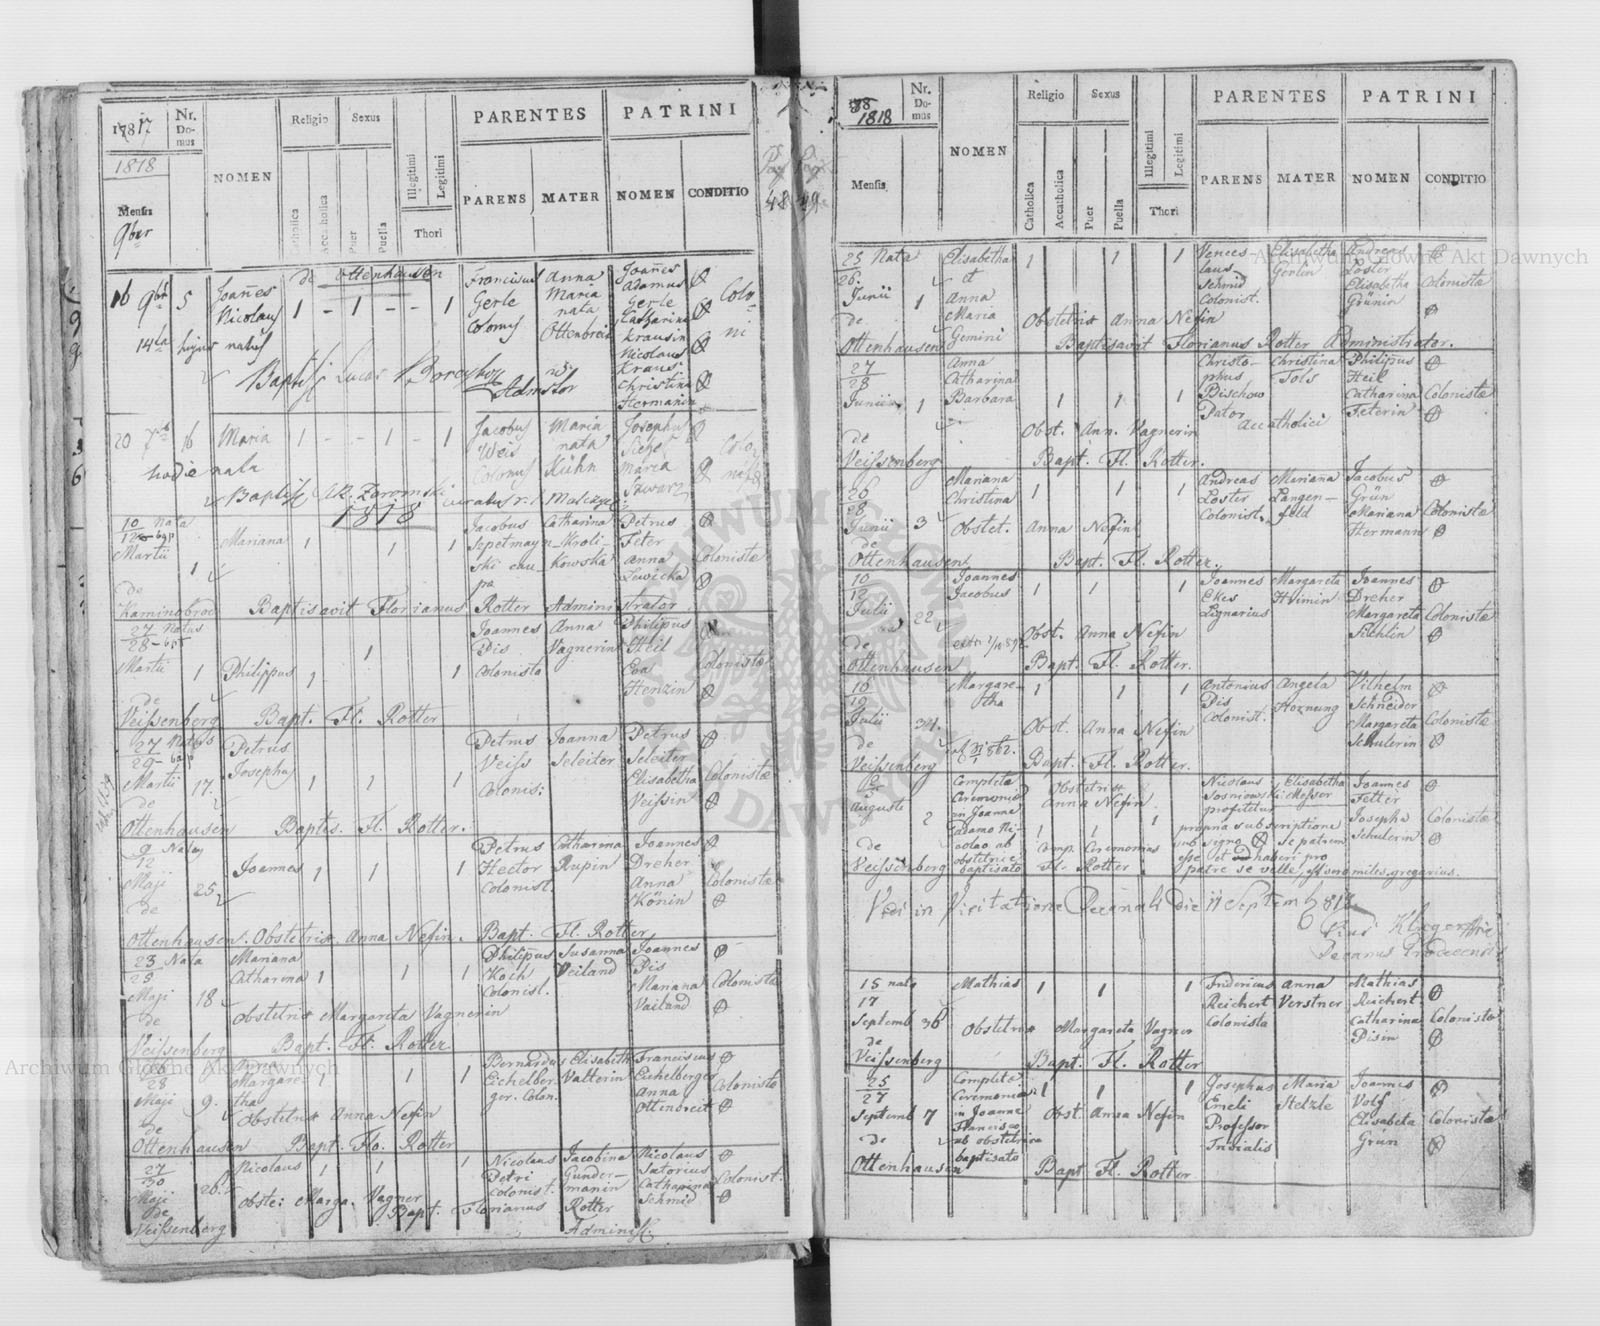 1817
Nr. Domus
NOMEN
Religio
Sexus
PARENTES
PATRINI
1818
Mensis
9ber
Catholica
Accatholica
Puer
Puella
Illegitimi
Legitimi
Thori
PARENS
MATER
NOMEN
CONDITIO
Pag
48
de Ottenhausen
16 9br 5 Joannes Nicolaus 1 - 1 - - 1
Franciscus Gerle Colonus
Anna Maria nata Ottenbreit
Joannes Adamus Gerle
Catharina Krausin
Nicolaus Kraus
Christina Hermanin
Coloni
14ta hujus natus
Baptiss Lucas
Admstor
20 16 Maria 1 - - 1 - 1
Jacobus Weis Colonus
Maria nata Kühn
Josephus Sichel
Maria Szwarz
hodie nata
Baptiss
1818
10 Nata
12 bap
Martii
1
Mariana 1 1 1
Jacobus
Catharina Kroli-
kowska
Petrus Feter
Anna Lewicka
Colonistæ
de
Kaminobrod
Baptisavit Florianus Rotter Administrator
27 Natus
28 - bap
Martii 1 Philippus 1 1 1
Joannes Pis Colonista
Anna Vagnerin
Philipus Heil
Eva Henzin
Colonistæ
de
Veissenberg
Bapt. Fl. Rotter
27 Natus
29 - bap
Martii 17. Petrus Josephus 1 1 1
Petrus Veiss Colonis:
Joanna Seleiter
Petrus Seleiter
Elisabetha Veissin
Colonistæ
de
Ottenhausen
Baptis. Fl. Rotter.
9 Natus
12
Maji 25 Joannes 1 1 1
Petrus Hector Colonist.
Catharina Rupin
Joannes Dreher
Anna Könin
Colonistæ
de
Ottenhausen. Obstetrix Anna Nefin. Bapt. Fl. Rotter
23 Nata
25
Maji 18 Mariana Catharina 1 1 1
Philipus Koch Colonist.
Susanna Veiland
Joannes Pis
Mariana Vailand
Colonistæ
de
Obstetrix Margareta Vagnerin
Veissenberg
Bapt. Fl. Rotter
26
28
Maji 9. Margaretha 1 1 1
Bernardus Eichelberger. Colon.
Elisabeth Valterin
Franciscus Eichelberger
Anna Ottenbreit
Colonistæ
de
Obstetrix Anna Nefin
Ottenhausen
Bapt. Flo. Rotter
27
30
Maji 26. Nicolaus 1 1 1
Nicolaus Petri Colonist.
Jacobina Gundermanin
Nicolaus Sartorius
Catharina Schmid
Colonist.
de
Obste: Marga. Vagner
Veissenberg
Bapt. Florianus Rotter
Adminiss.
178
1818
Nr. Domus
NOMEN
Religio
Sexus
PARENTES
PATRINI
Mensis
Catholica
Accatholica
Puer
Puella
Illegitimi
Legitimi
Thori
PARENS
MATER
NOMEN
CONDITIO
Pag
49
25 Nata
26.
Junii 1
Elisabetha et Anna Maria Gemini
1 1 1
Venceslaus Schmid Colonist.
Elisabetha Gerlin
Andreas Loster
Elisabetha Grünin
Colonistæ
de
Obstetrix Anna Nefin
Ottenhausen
Baptisavit Florianus Rotter Administrator.
27
28
Junii 1 Anna Catharina Barbara 1 1 1
Christophus Bischow Pator
Christina Tols
accatholici
Philippus Heil
Catharina Feterin
Colonistæ
de
Obst. Ann. Vagnerin
Veissenberg
Bapt. Fl. Rotter.
26
28
Junii 3 Mariana Christina 1 1 1
Andreas Loster Colonist.
Mariana Langenfeld
Jacobus Grün
Mariana Hermann
Colonistæ
Obstet. Anna Nefin
de
Ottenhausen
Bapt. Fl. Rotter.
10
12
Julii 22 Joannes Jacobus 1 1 1
Joannes Ekes Lignarius
Margareta
Joannes Dreher
Margareta
Colonistæ
Obst. Anna Nefin
de
Ottenhausen
Bapt. Fl. Rotter.
10
12
Julii 34. Margaretha 1 1 1
Antonius Pis Colonist.
Angela Hornung
Vilhelm Schneider
Margareta Schulerin
Colonistæ
Obst. Anna Nefin
de
Veissenberg
Bapt. Fl. Rotter.
Auguste 2
Completæ Ceremoniæ in Joanne Adamo Nicolao ab obstetrice baptisato
Obstetrix Anna Nefin.
1 1 1
Nicolaus Sosniowski
Elisabetha Messer
profitetur propria subscriptione sub signo se patrem esse et haberi pro patre se velle, est vero miles gregarius.
Joannes Fetter
Josepha Schulerin
Colonistæ
de
Comp. Ceremonias
Fl. Rotter
Veissenberg
Vidi in Visitatione Decanali die 11 Septemb 818
Decanus Grodecensis
15 nata
17
Septemb 36 Mathias 1 1 1
Fridericus Reichert Colonista
Anna Verstner
Mathias Reichert
Catharina Pisin
Colonistæ
Obstetrix Margareta Vagner
de
Veissenberg
Bapt. Fl. Rotter
25
27
Septemb 7
Completæ Ceremoniæ in Joanne Francisco ab obstetrice baptisato
1 1 1
Josephus Emeli Professor Trivialis
Maria Stelzle
Joannes Volf
Elisabeta Grün
Colonistæ
Obst. Anna Nefin
de
Ottenhausen
Bapt. Fl. Rotter
Archiwum Główne Akt Dawnych
Archiwum Główne Akt Dawnych
ARCHIWUM GŁÓWNE AKT DAWNYCH